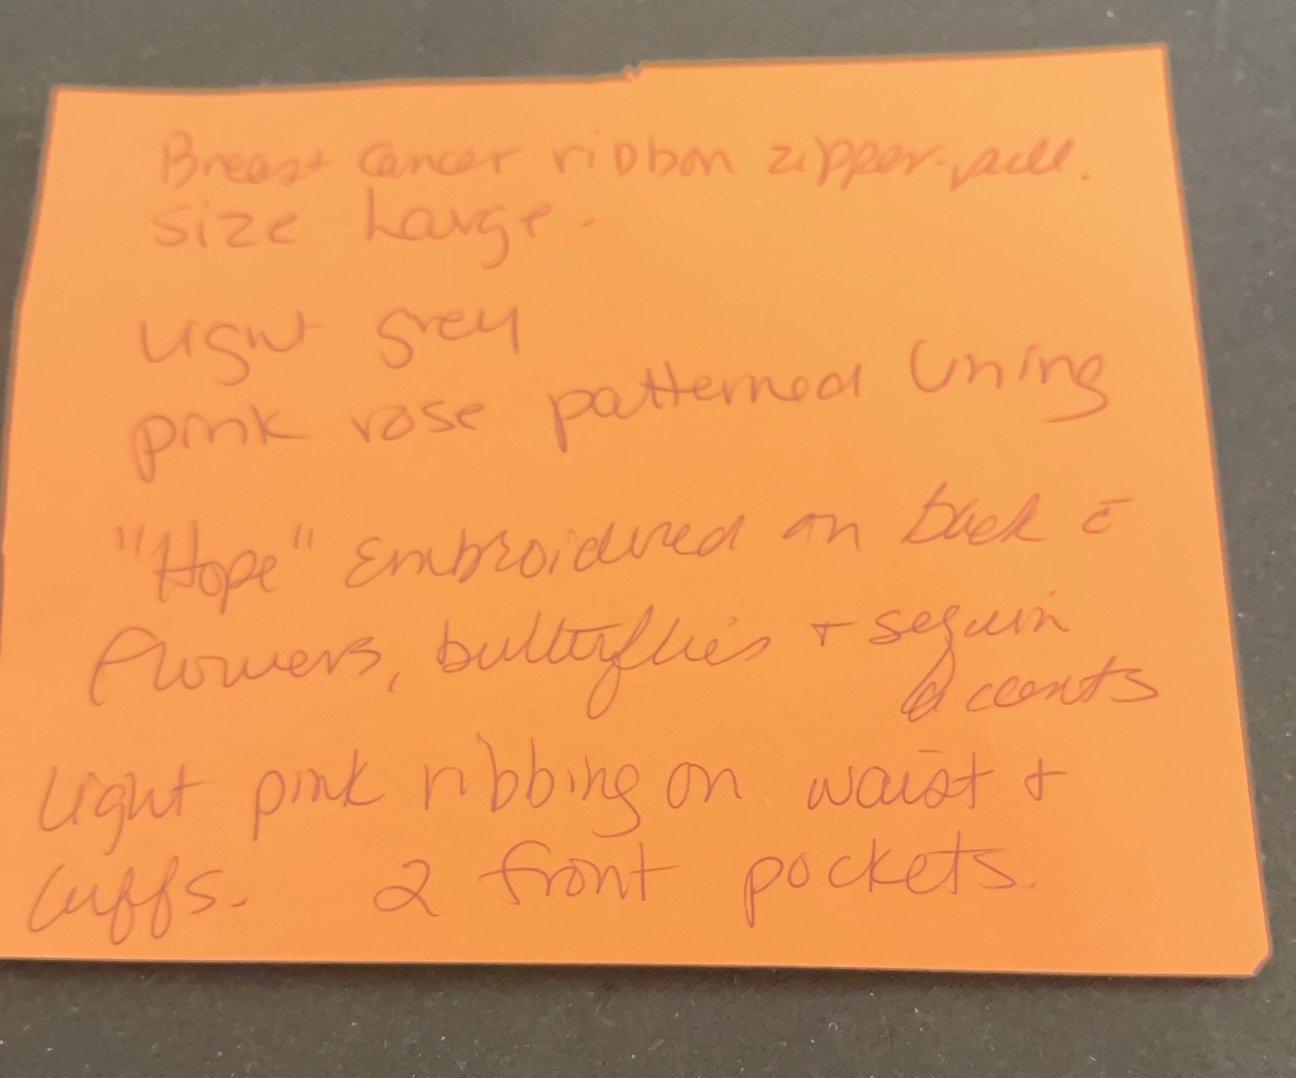 Breast Cancer ribbon zipper pull.
Size Large.
Light grey
pink rose patterned lining
"Hope" Embroidered on back c̄
flowers, butterflies + sequin
accents
Light pink ribbing on waist +
cuffs. 2 front pockets.